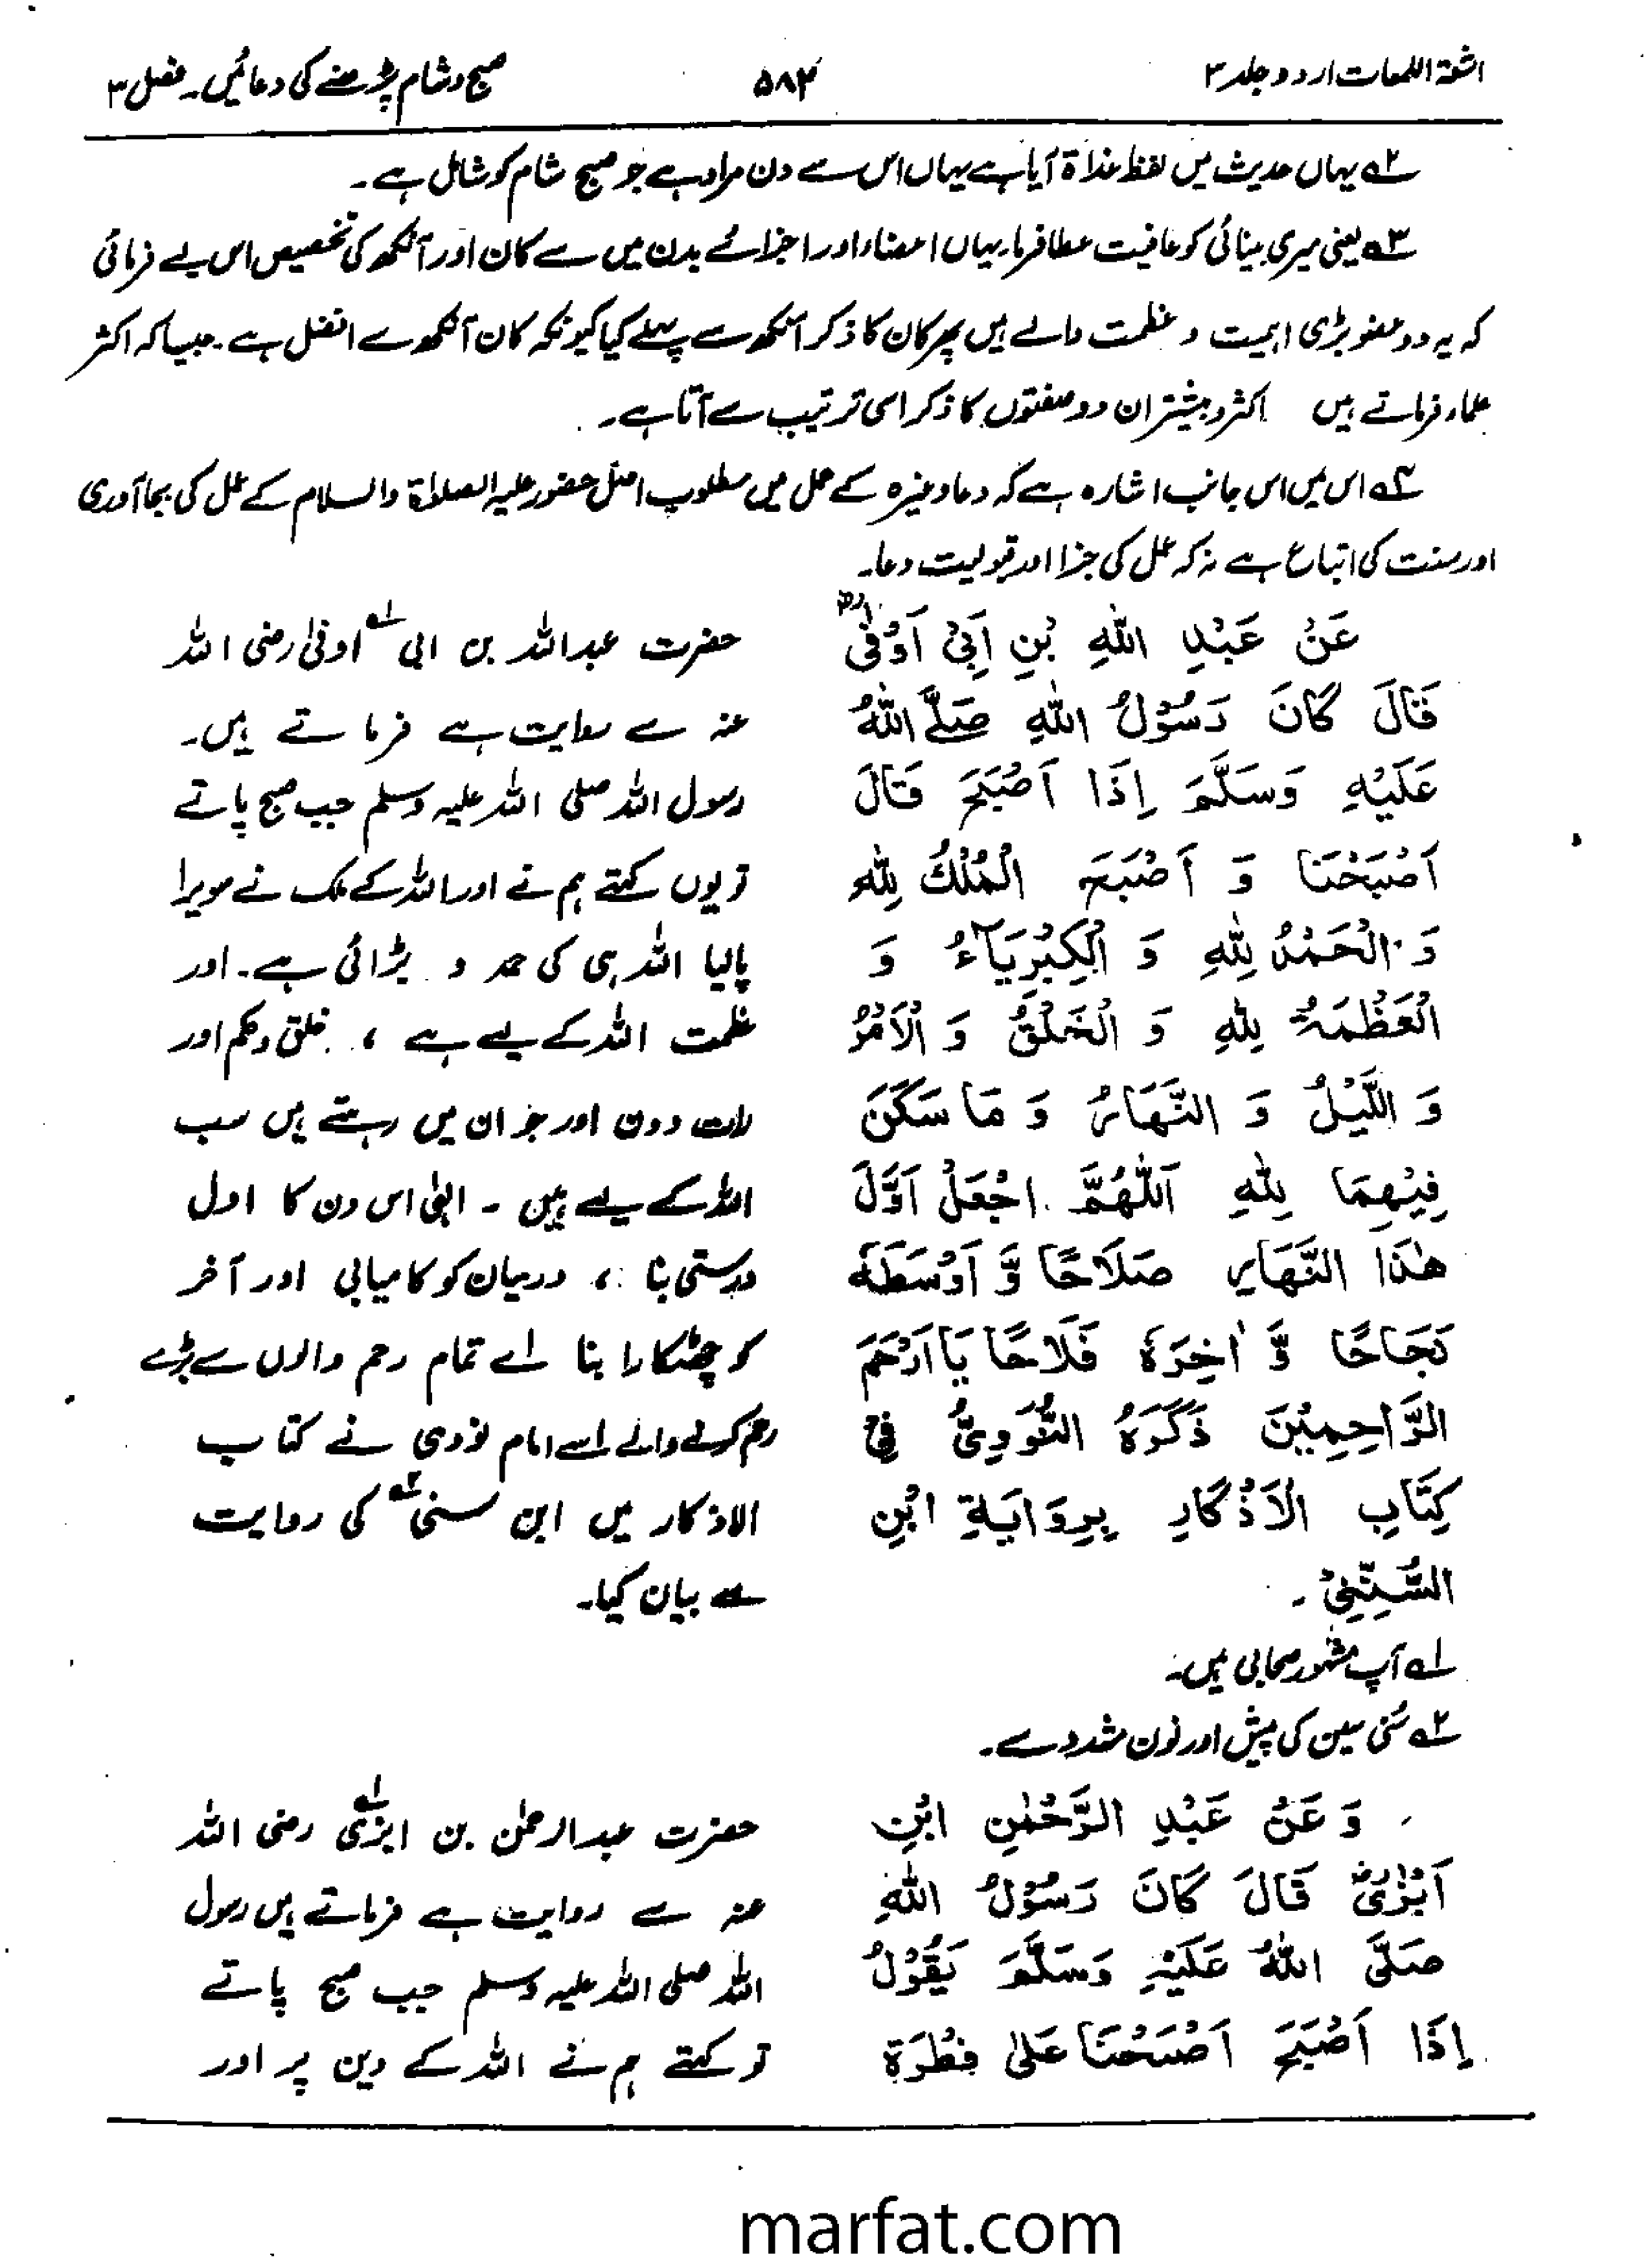 اشعۃ اللمعات اردو جلد ۳
۵۸۴
صبح و شام پڑھنے کی دعائیں۔ فصل ۳
۲ یہاں حدیث میں لفظ غداۃ آیا ہے یہاں اس سے دن مراد ہے جو صبح شام کو شامل ہے۔
۳ یعنی میری بینائی کو عافیت عطا فرما۔ یہاں اعضاء اور اجزائے بدن میں سے کان اور آنکھ کی تخصیص اس لیے فرمائی
کہ یہ دو عضو بڑی اہمیت و عظمت والے ہیں پھر کان کا ذکر آنکھ سے پہلے کیا کیونکہ کان آنکھ سے افضل ہے۔ جیسا کہ اکثر
علماء فرماتے ہیں اکثر و بیشتر ان دو صفتوں کا ذکر اسی ترتیب سے آتا ہے۔
۴ اس میں اس جانب اشارہ ہے کہ دعا وغیرہ کے عمل میں مطلوب اصل حضور علیہ الصلوٰۃ والسلام کے عمل کی بجا آوری
اور سنت کی اتباع ہے نہ کہ عمل کی جزا اور قبولیت دعا۔
عَنْ عَبْدِ اللّٰهِ بْنِ اَبِيْ اَوْفٰى
قَالَ كَانَ رَسُوْلُ اللّٰهِ صَلَّى اللّٰهُ
عَلَيْهِ وَسَلَّمَ اِذَا اَصْبَحَ قَالَ
اَصْبَحْنَا وَ اَصْبَحَ الْمُلْكُ لِلّٰهِ
وَ الْحَمْدُ لِلّٰهِ وَ الْكِبْرِيَآءُ وَ
الْعَظْمَةُ لِلّٰهِ وَ الْخَلْقُ وَ الْاَمْرُ
وَ اللَّيْلُ وَ النَّهَارُ وَ مَا سَكَنَ
فِيْهِمَا لِلّٰهِ اَللّٰهُمَّ اجْعَلْ اَوَّلَ
هٰذَا النَّهَارِ صَلَاحًا وَّ اَوْسَطَهٗ
نَجَاحًا وَّ اٰخِرَهٗ فَلَاحًا يَا اَرْحَمَ
الرَّاحِمِيْنَ ذَكَرَهُ النَّوَوِيُّ فِيْ
كِتَابِ الْاَذْكَارِ بِرِوَايَةِ ابْنِ
السُّنِّيِّ۔
حضرت عبداللہ بن ابی ۱ اوفیٰ رضی اللہ
عنہ سے روایت ہے فرماتے ہیں۔
رسول اللہ صلی اللہ علیہ وسلم جب صبح پاتے
تو یوں کہتے ہم نے اور اللہ کے ملک نے سویرا
پالیا اللہ ہی کی حمد و بڑائی ہے۔ اور
عظمت اللہ کے لیے ہے ، خلق و حکم اور
رات و دن اور جو ان میں رہتے ہیں سب
اللہ کے لیے ہیں ۔ الٰہی اس دن کا اول
درستی بنا ، درمیان کو کامیابی اور آخر
کو چھٹکارا بنا اے تمام رحم والوں سے بڑے
رحم کرنے والے اسے امام نووی نے کتاب
الاذکار میں ابن سنی ۲ کی روایت
سے بیان کیا۔
۱ آپ مشہور صحابی ہیں۔
۲ سُنی سین کی پیش اور نون مشدد سے۔
وَ عَنْ عَبْدِ الرَّحْمٰنِ ابْنِ
اَبْزٰى قَالَ كَانَ رَسُوْلُ اللّٰهِ
صَلَّى اللّٰهُ عَلَيْهِ وَسَلَّمَ يَقُوْلُ
اِذَا اَصْبَحَ اَصْبَحْنَا عَلٰى فِطْرَةِ
حضرت عبدالرحمٰن بن ابزیٰ ۱ رضی اللہ
عنہ سے روایت ہے فرماتے ہیں رسول
اللہ صلی اللہ علیہ وسلم جب صبح پاتے
تو کہتے ہم نے اللہ کے دین پر اور
marfat.com